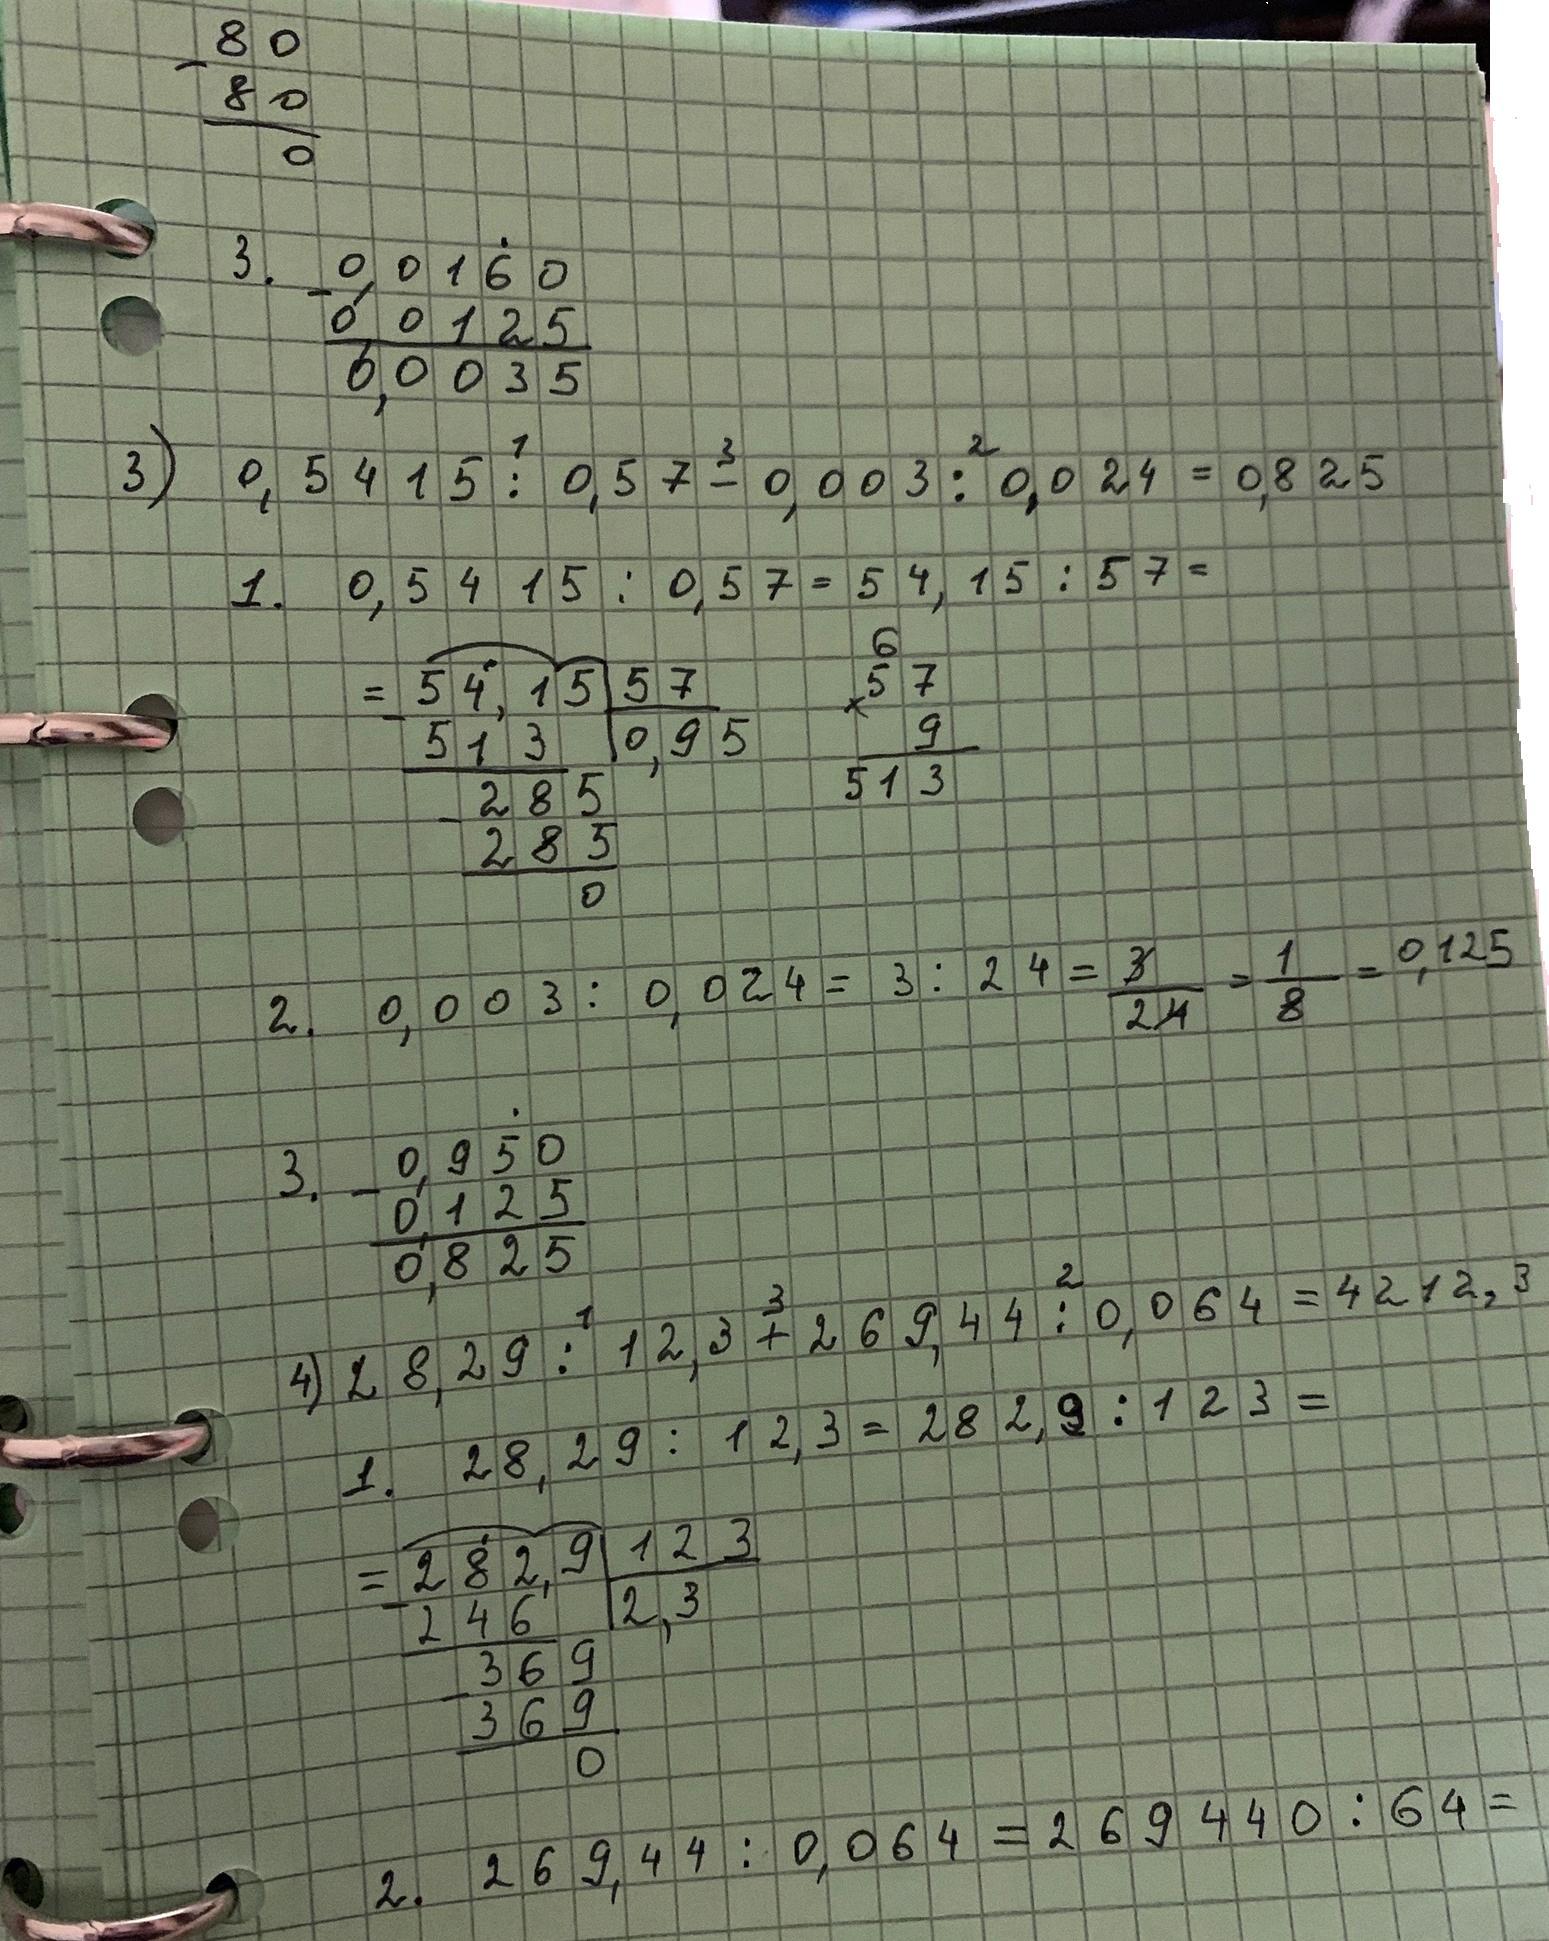 80
- 80
0
3. - 0,0160
0,0125
0,0035
3) 0,5415 :¹ 0,57 -³ 0,003 :² 0,024 = 0,825
1. 0,5415 : 0,57 = 54,15 : 57 =
= - 54,15 | 57
513 | 0,95
- 285
285
0
6
57
× 9
513
2. 0,003 : 0,024 = 3 : 24 = 3/24 = 1/8 = 0,125
3. - 0,950
0,125
0,825
4) 28,29 :¹ 12,3 +³ 269,44 :² 0,064 = 4212,3
1. 28,29 : 12,3 = 282,9 : 123 =
= - 282,9 | 123
246 | 2,3
- 369
369
0
2. 269,44 : 0,064 = 269440 : 64 =